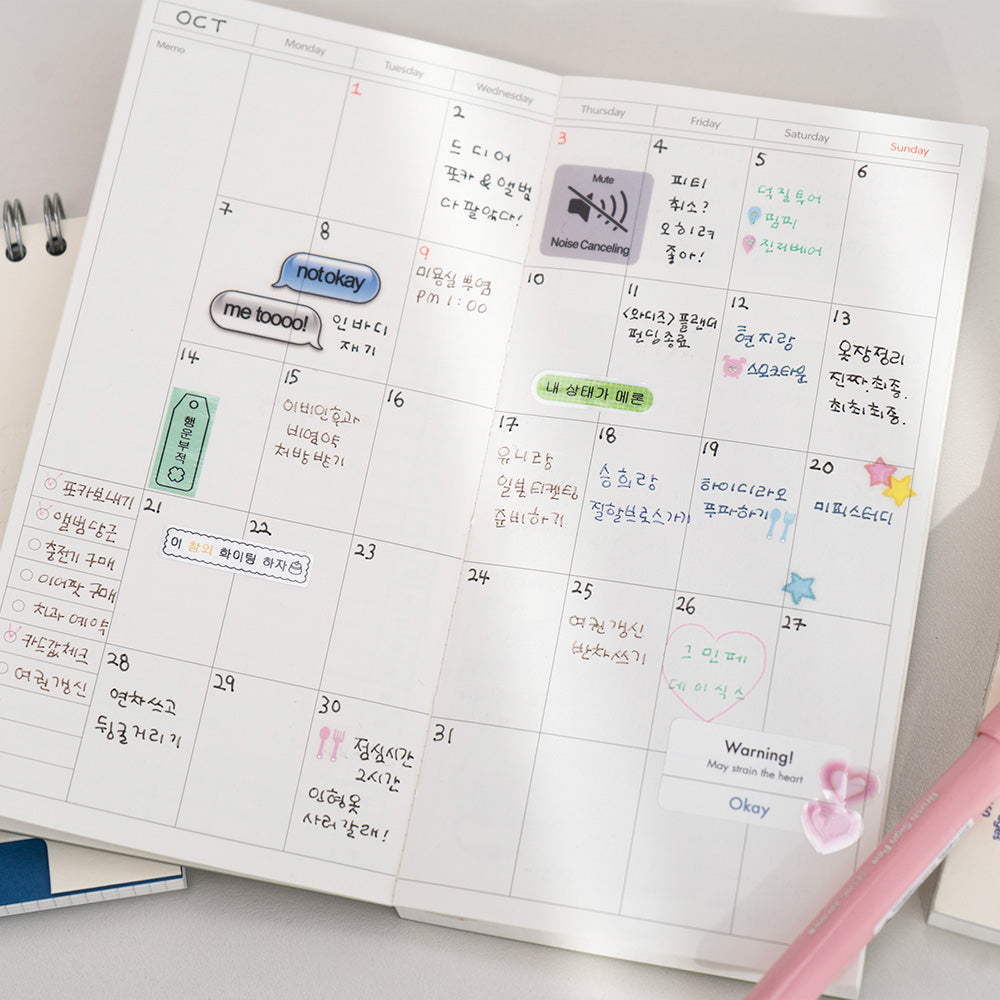 OCT
Monday
Tuesday
Wednesday
Thursday
Friday
Saturday
Sunday
Memo
1
2
드디어
포카 & 앨범
다 팔았다!
3
Mute
Noise Canceling
4
피티
취소?
오히려
좋아!
5
덕질투어
핌픽
진저베어
6
7
8
notokay
me toooo!
인바디
재기
9
미용실 뿌염
PM 1:00
10
11
<와디즈> 플랜더
펀딩종료
12
현지랑
스모크타운
13
옷장정리
진짜.최종.
최최최종.
14
행운부적
15
이비인후과
비염약
처방받기
16
내 상태가 메론
17
유니랑
일본티켓팅
준비하기
18
승희랑
질할브로스가기
19
하이디라오
푸파하기
20
미피스터디
포카보내기
앨범당근
충전기 구매
이어팟 구매
치과 예약
카드값체크
여권갱신
21
22
이 참외 화이팅 하자
23
24
25
여권갱신
반차쓰기
26
그민페
데이식스
27
28
연차쓰고
뒹굴거리기
29
30
점심시간
2시간
인형옷
사러갈래!
31
Warning!
May strain the heart
Okay
Brush Sign Pen